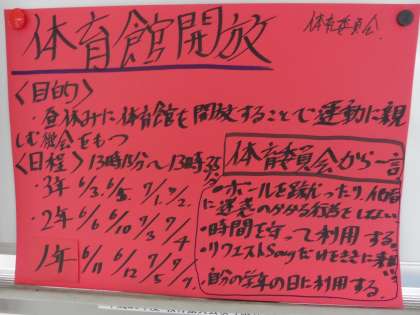 体育館開放
体育委員会
〈目的〉
・昼休みに体育館を開放することで運動に親
しむ機会をもつ
〈日程〉13時15分〜13時35分
・3年 6/3. 6/5. 7/1. 7/2.
・2年 6/6 6/10 7/3 7/4
1年 6/11 6/12 7/5 7/7
体育委員会から一言
・ボールを蹴ったり、他者
に迷惑のかかる行為をしない。
・時間を守って利用する。
・リクエストSongだけをききに来ない
・自分の学年の日に利用する。